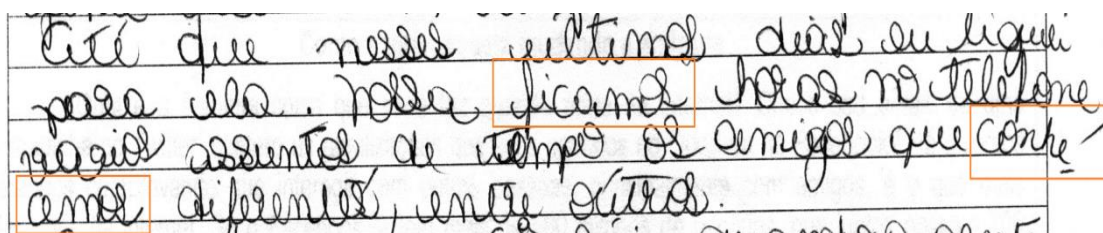 Até que nesses ultimos dias eu liguei
para ela. nossa ficamos horas no telefone
varios assuntos de tempo os amigos que conhe-
amos diferentes, entre outros.